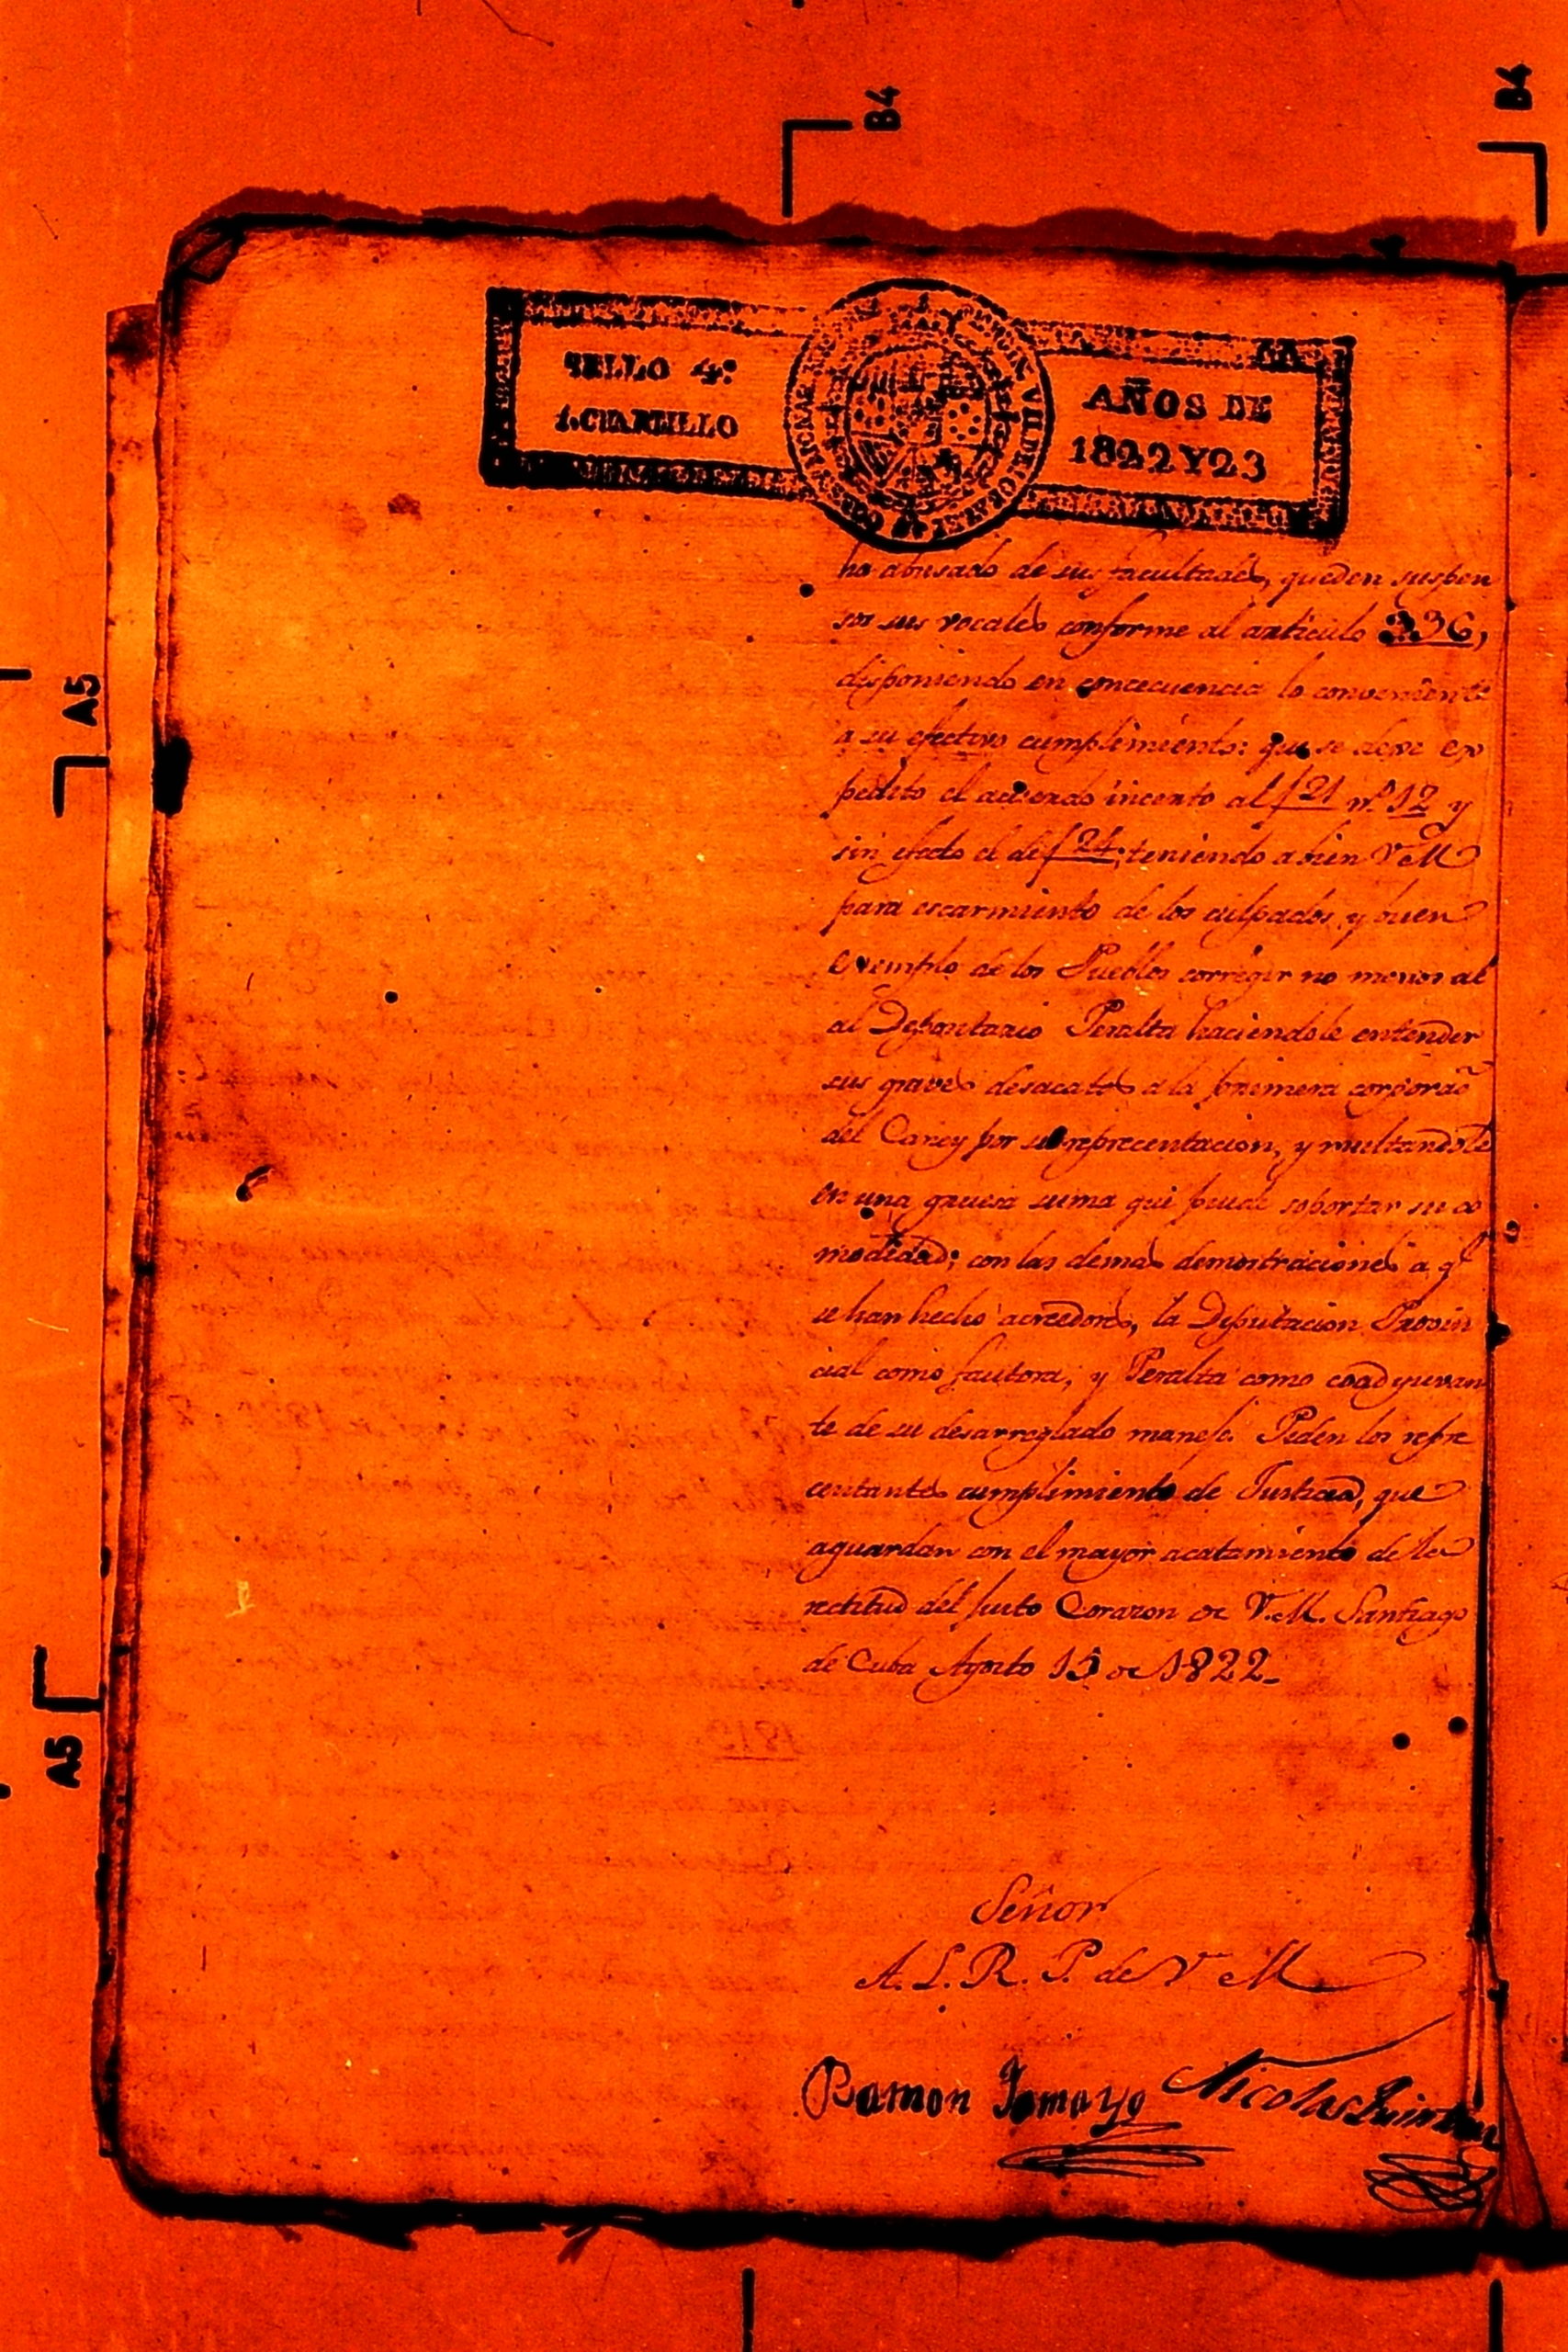 B4
B4
SELLO 4º
1.CUARTILLO
AÑOS DE
1822Y23
ha abusado de sus facultades, queden suspen
sos sus vocales conforme al articulo 336,
disponiendo en concecuencia lo conveniente
a su efectivo cumplimiento: que se deve ex
pedito el acuerdo incerto al f 21 nº 12 y
sin efecto el de f 24; teniendo abien V M
para escarmiento de los culpados, y buen
exemplo de los Pueblos corregir no menos al
al Depontario Peralta haciendole entender
sus graves desacatos a la primera corporaõ
del Caney por su reprecentacion, y multandole
en una gruesa suma que puede soportar su co
modidad; con las demas demostraciones a qe
se han hecho acreedores, la Diputacion Provin
cial como fautora, y Peralta como coadyuvan
te de su desarreglado manejo. Piden los repre
centantes cumplimiento de Justicia, que
aguardan con el mayor acatamiento de la
rectitud del justo Corazon de V.M. Santiago
de Cuba Agosto 15 de 1822_
Señor
A. L. R. P. de V M
Ramon Tamayo Nicolas
A5
A5